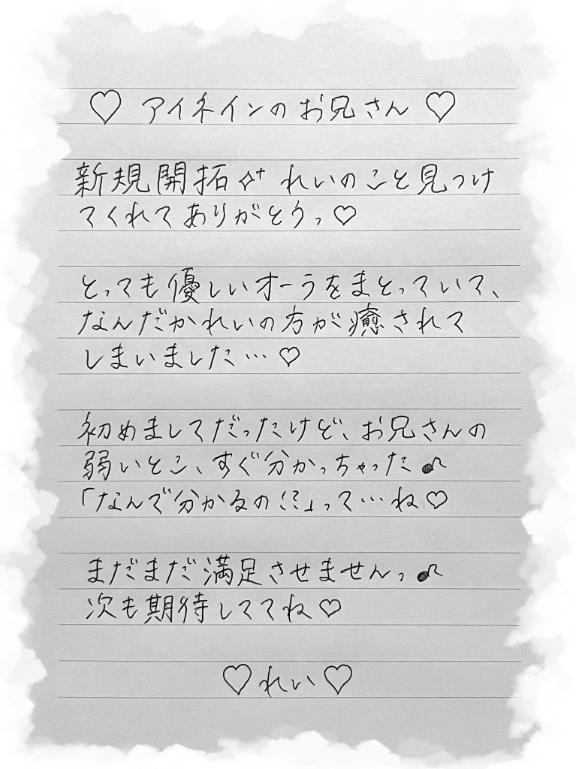 ♡ アイネインのお兄さん ♡
新規開拓✧⁺ れいのこと見つけ
てくれてありがとうっ♡
とっても優しいオーラをまとっていて、
なんだかれいの方が癒されて
しまいました…♡
初めましてだったけど、お兄さんの
弱いとこ、すぐ分かっちゃった♪
「なんで分かるの!?」って…ね♡
まだまだ満足させませんっ♪
次も期待しててね♡
♡れい♡